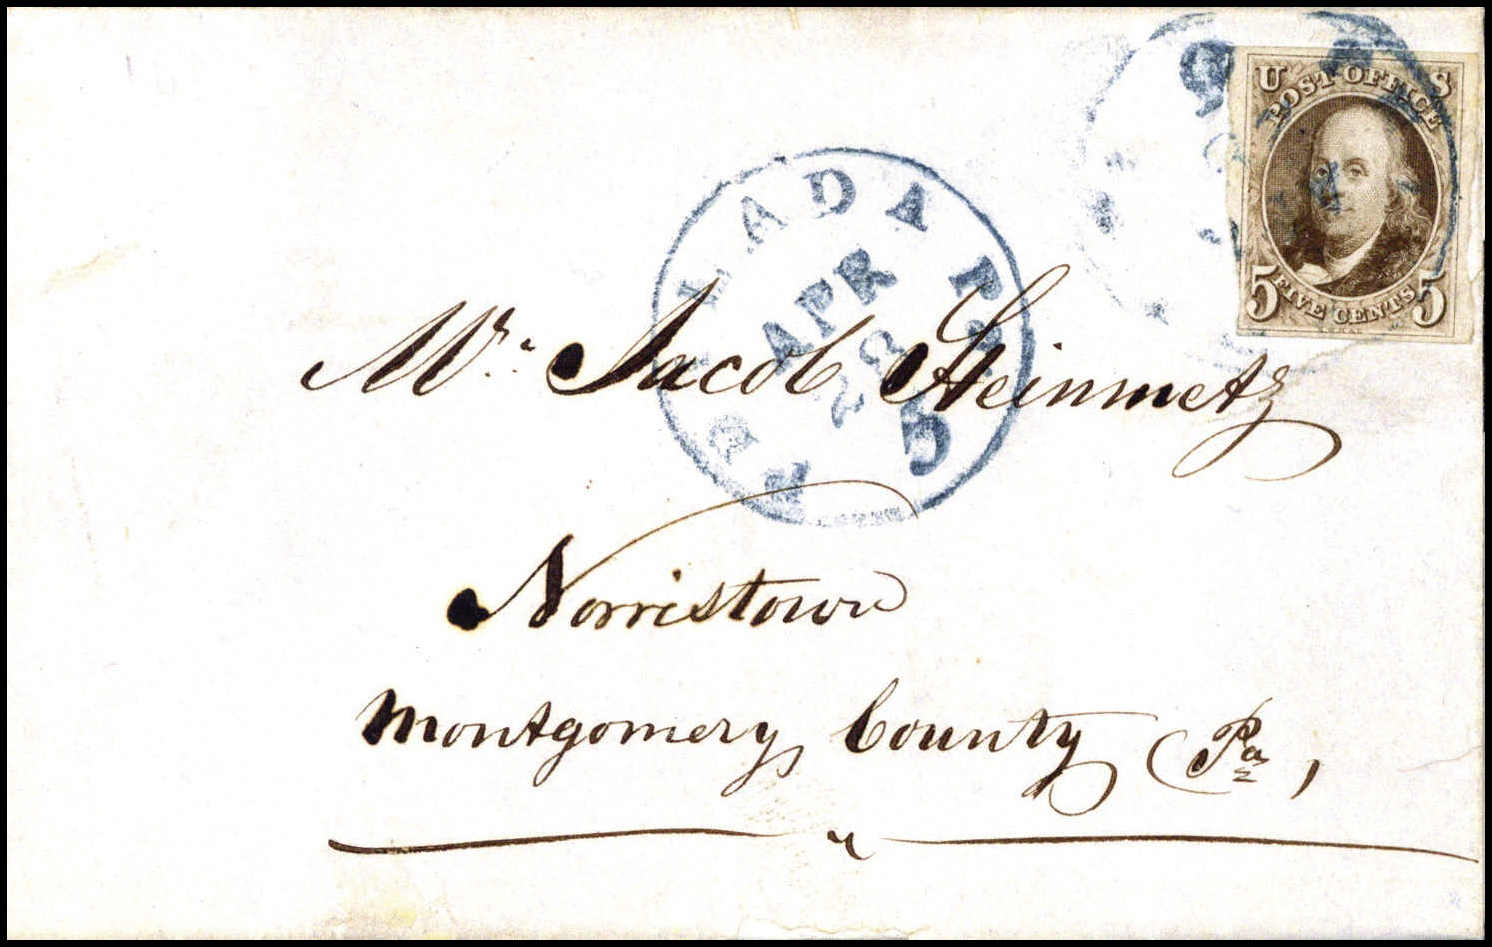 U S
POST OFFICE
5 FIVE CENTS 5
APR
5
Mr. Jacob Steinmetz
Norristown
Montgomery County Pa,